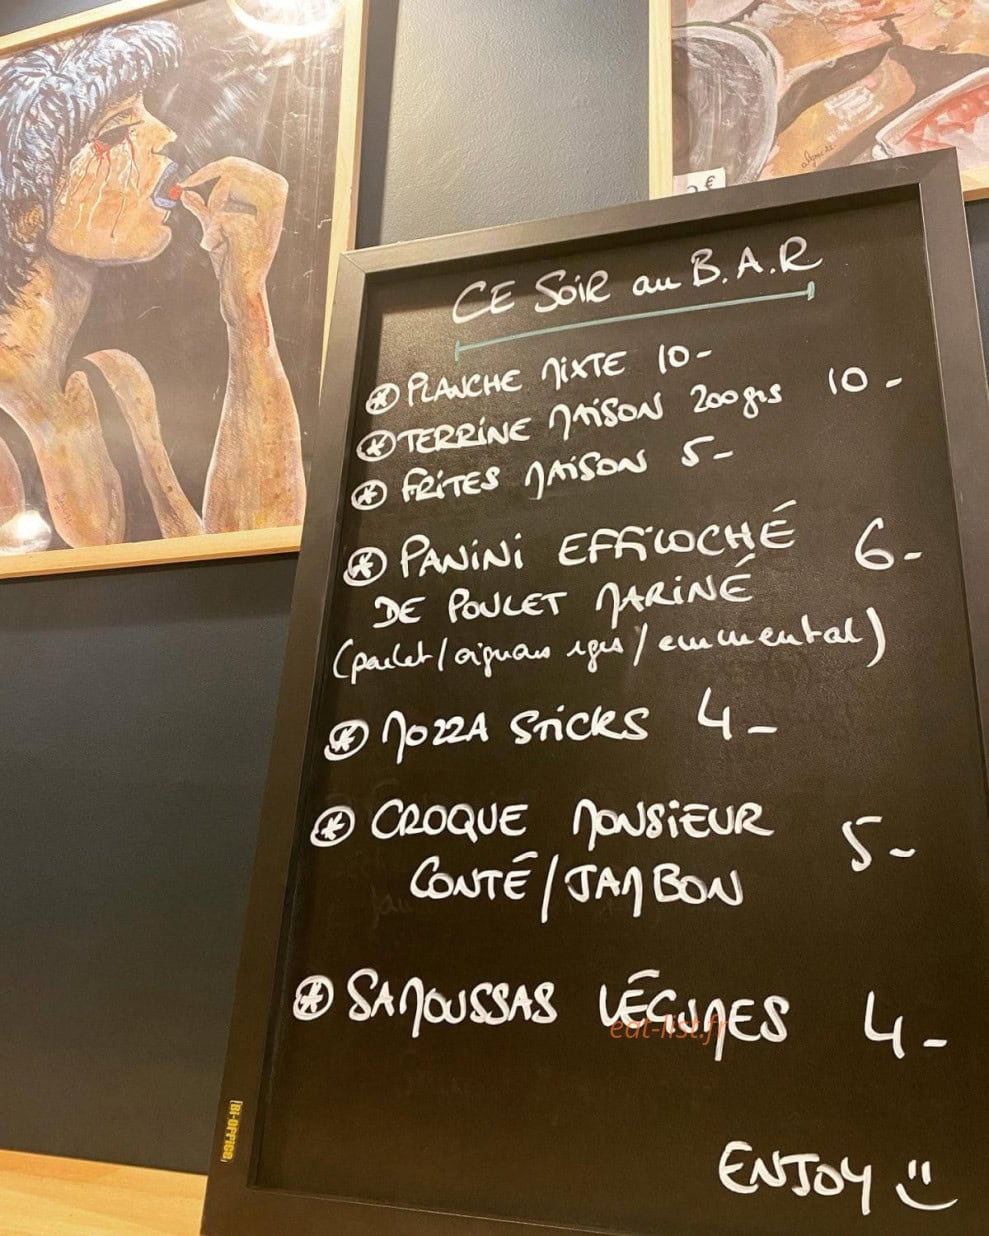 CE SOIR au B.A.R
PLANCHE MIXTE 10-
TERRINE MAISON 200grs 10-
FRITES MAISON 5-
PANINI EFFILOCHÉ 6-
DE POULET MARINÉ
(poulet/oignons /emmental)
MOZZA STICKS 4-
CROQUE MONSIEUR 5-
CONTÉ/JAMBON
SAMOUSSAS LÉGUMES 4-
eat-list.fr
ENJOY
BI-OFFICE
€